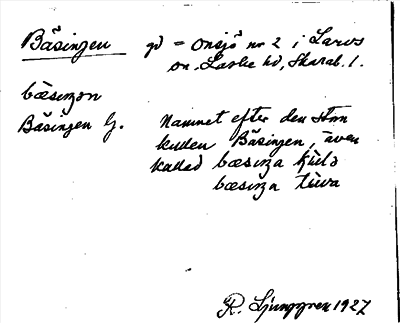 Bäsingen gd = Onsjö nr 2 i Larvs
sn. Laske hd, Skarab. l.
bæsiŋən
Bäsingen G. Namnet efter den stora
kullen Bäsingen, även
kallad bæsiŋa kùlə
bæsiŋa tùva
R. Ljunggren 1927